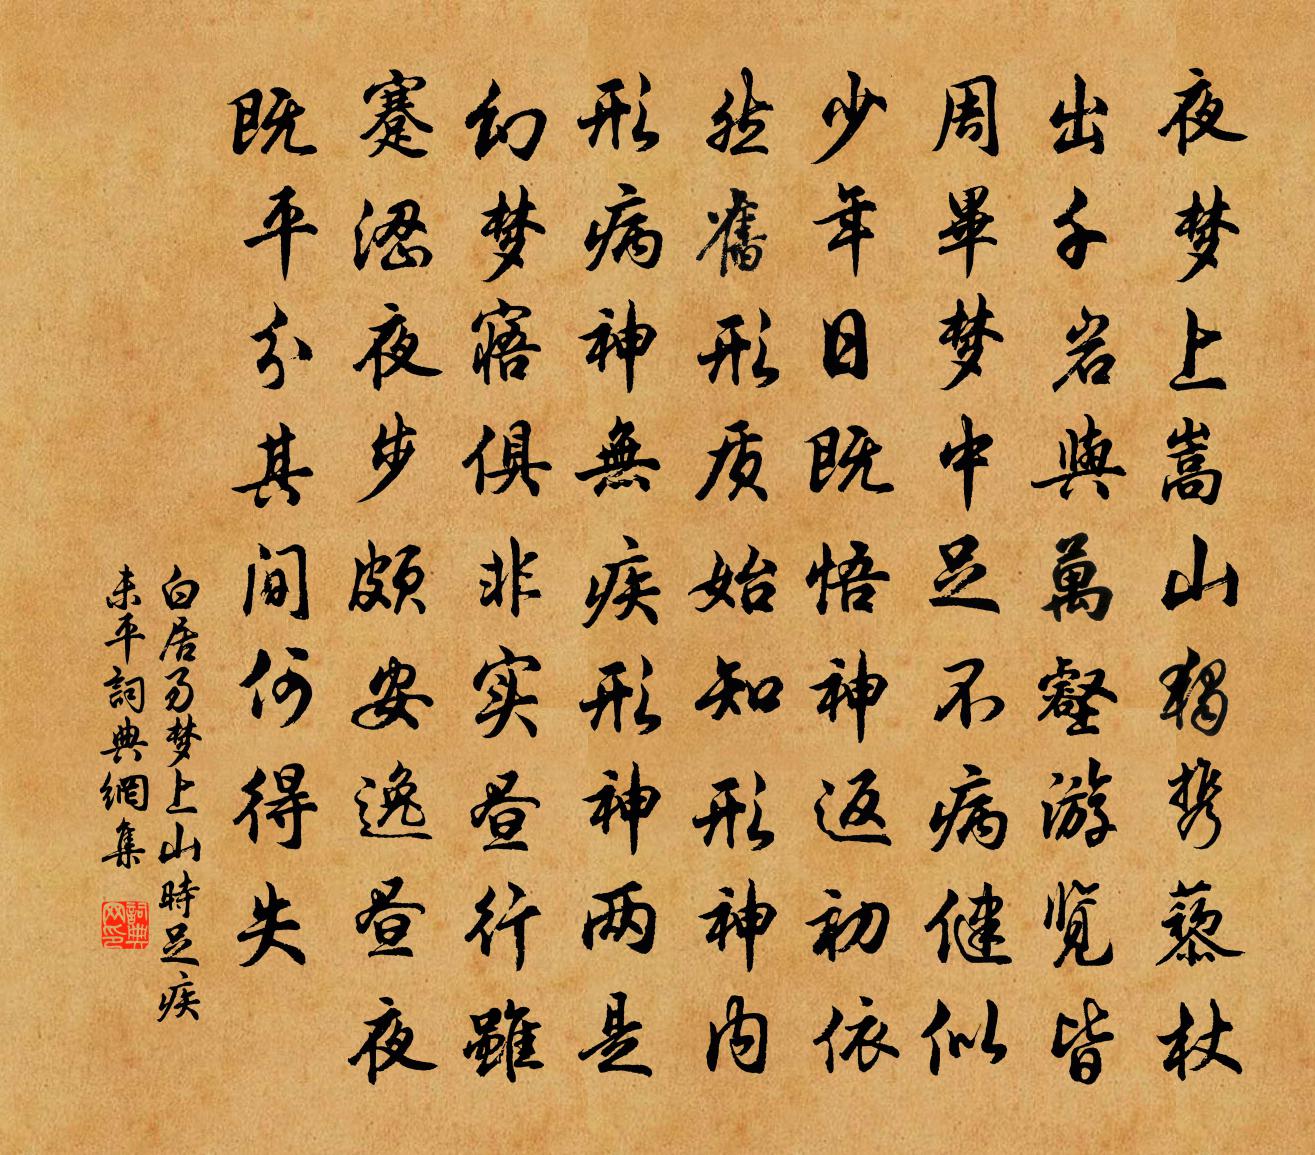 夜梦上嵩山獨携藜杖
出千岩與萬壑游览皆
周畢梦中足不病健似
少年日既悟神返初依
然舊形质始知形神内
形病神無疾形神两是
幻梦寤俱非实昼行雖
蹇澀夜步頗安逸昼夜
既平分其間何得失
白居易梦上山時足疾
未平詞典網集
詞典网印